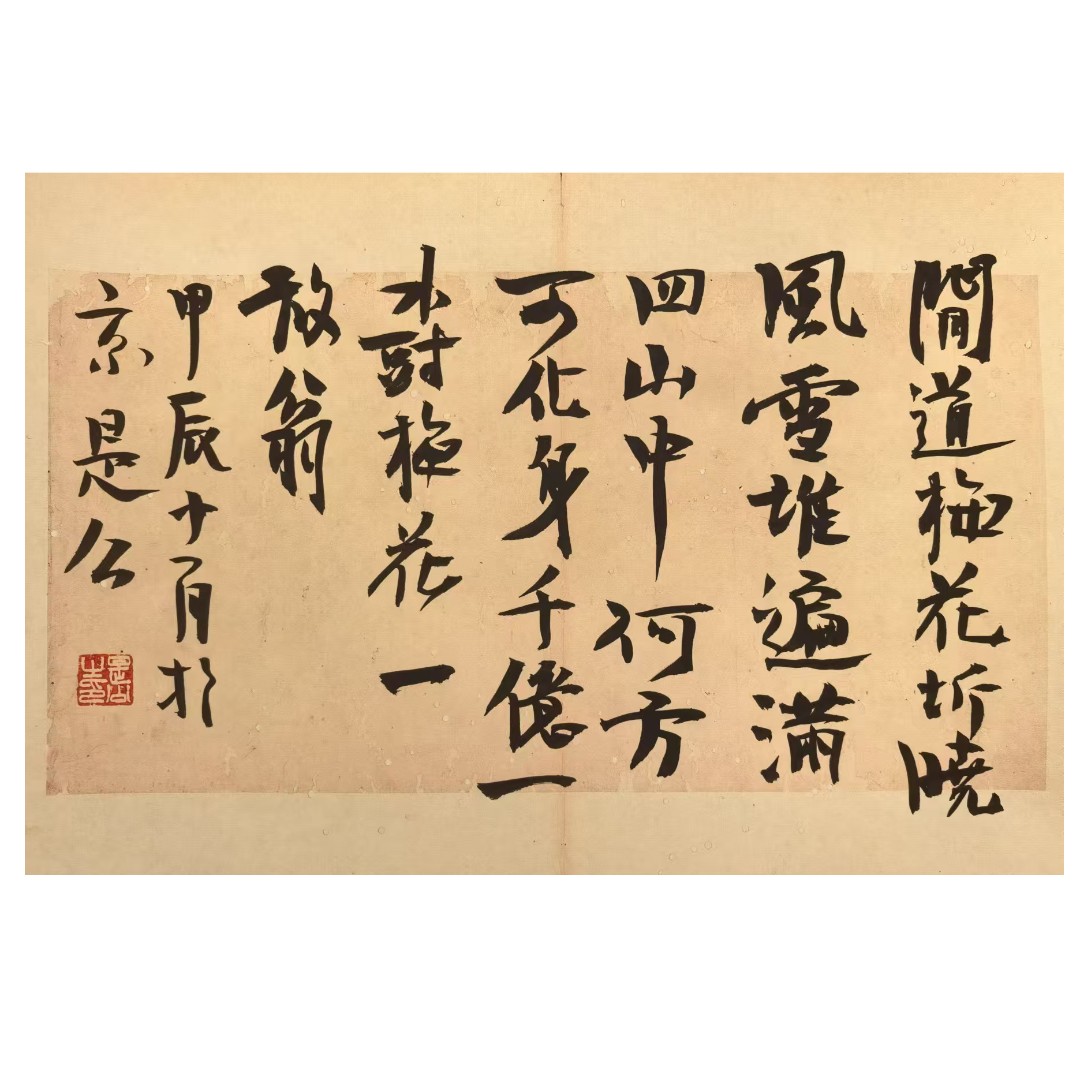 聞道梅花坼曉
風雪堆遍滿
四山中何方
可化身千億一
樹梅花一
放翁
甲辰十一月於
京是公
是公之印